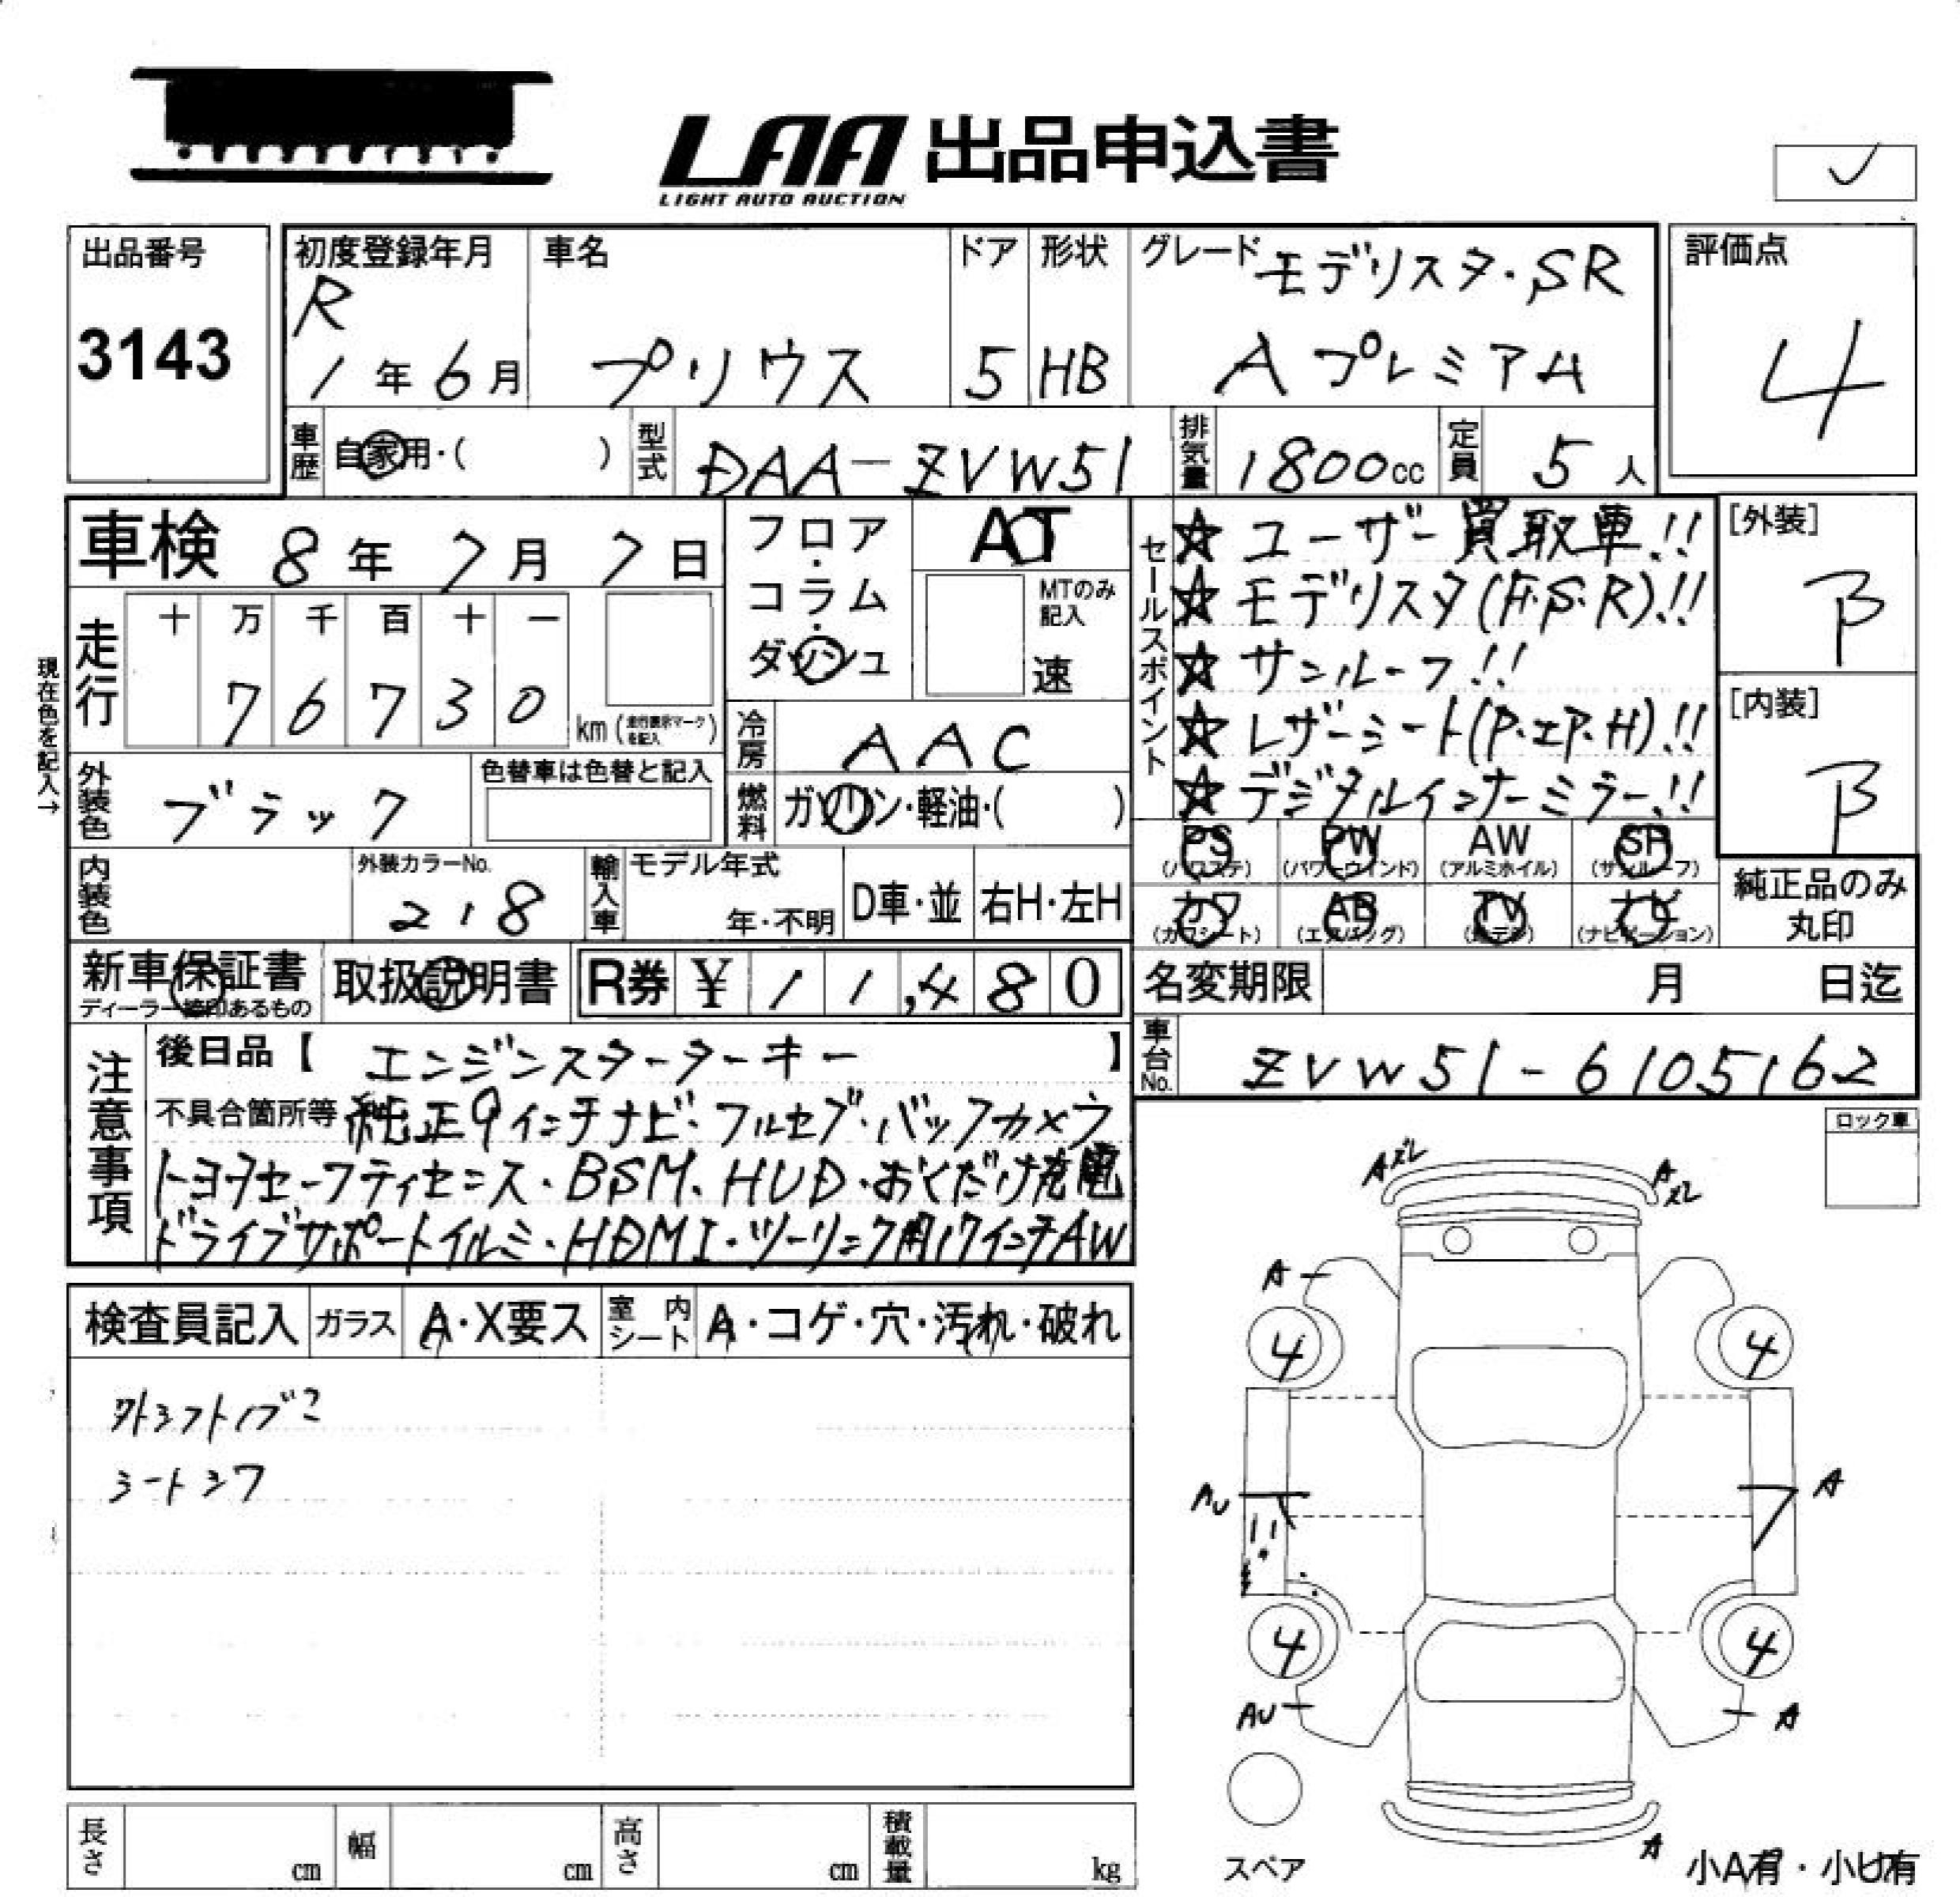 LAA 出品申込書
LIGHT AUTO AUCTION
出品番号
3143
初度登録年月
R
1年6月
車名
プリウス
ドア
5
形状
HB
グレード モデリスタ・SR
Aプレミアム
評価点
4
車歴 自家用・( )
型式 DAA-ZVW51
排気量 1800cc
定員 5人
車検 8年7月7日
フロア・コラム・ダッシュ
AT
MTのみ記入
速
走行
十 万 千 百 十 一
7 6 7 3 0
km (走行表示マークを記入)
現在色を記入→
冷房 AAC
燃料 ガソリン・軽油・( )
外装色 ブラック
色替車は色替と記入
内装色
外装カラーNo.
218
輸入車
モデル年式
年・不明
D車・並
右H・左H
セールスポイント
☆ユーザー買取車!!
☆モデリスタ(F.S.R)!!
☆サンルーフ!!
☆レザーシート(P.エP.H)!!
☆デジタルインナーミラー!!
[外装]
B
[内装]
B
PS (パワステ)
PW (パワーウインド)
AW (アルミホイル)
SR (サンルーフ)
カワ (カワシート)
AB (エアバッグ)
TV (テレビ)
ナビ (ナビゲーション)
純正品のみ丸印
新車保証書
ディーラー捺印あるもの
取扱説明書
R券 ¥ 11,480
名変期限 月 日迄
車台No. ZVW51-6105162
注意事項
後日品【 エンジンスターターキー 】
不具合箇所等 純正9インチナビ・フルセグ・バックカメラ
トヨタセーフティセンス・BSM、HUD・おくだけ充電
ドライブサポートイルミ・HDMI・ツーリング用17インチAW
ロック車
検査員記入
ガラス A・X要ス
室内シート A・コゲ・穴・汚れ・破れ
シートシワ
A
4
4
AU
A
4
4
AU
A
A
スペア
小A有・小U有
長さ cm
幅 cm
高さ cm
積載量 kg